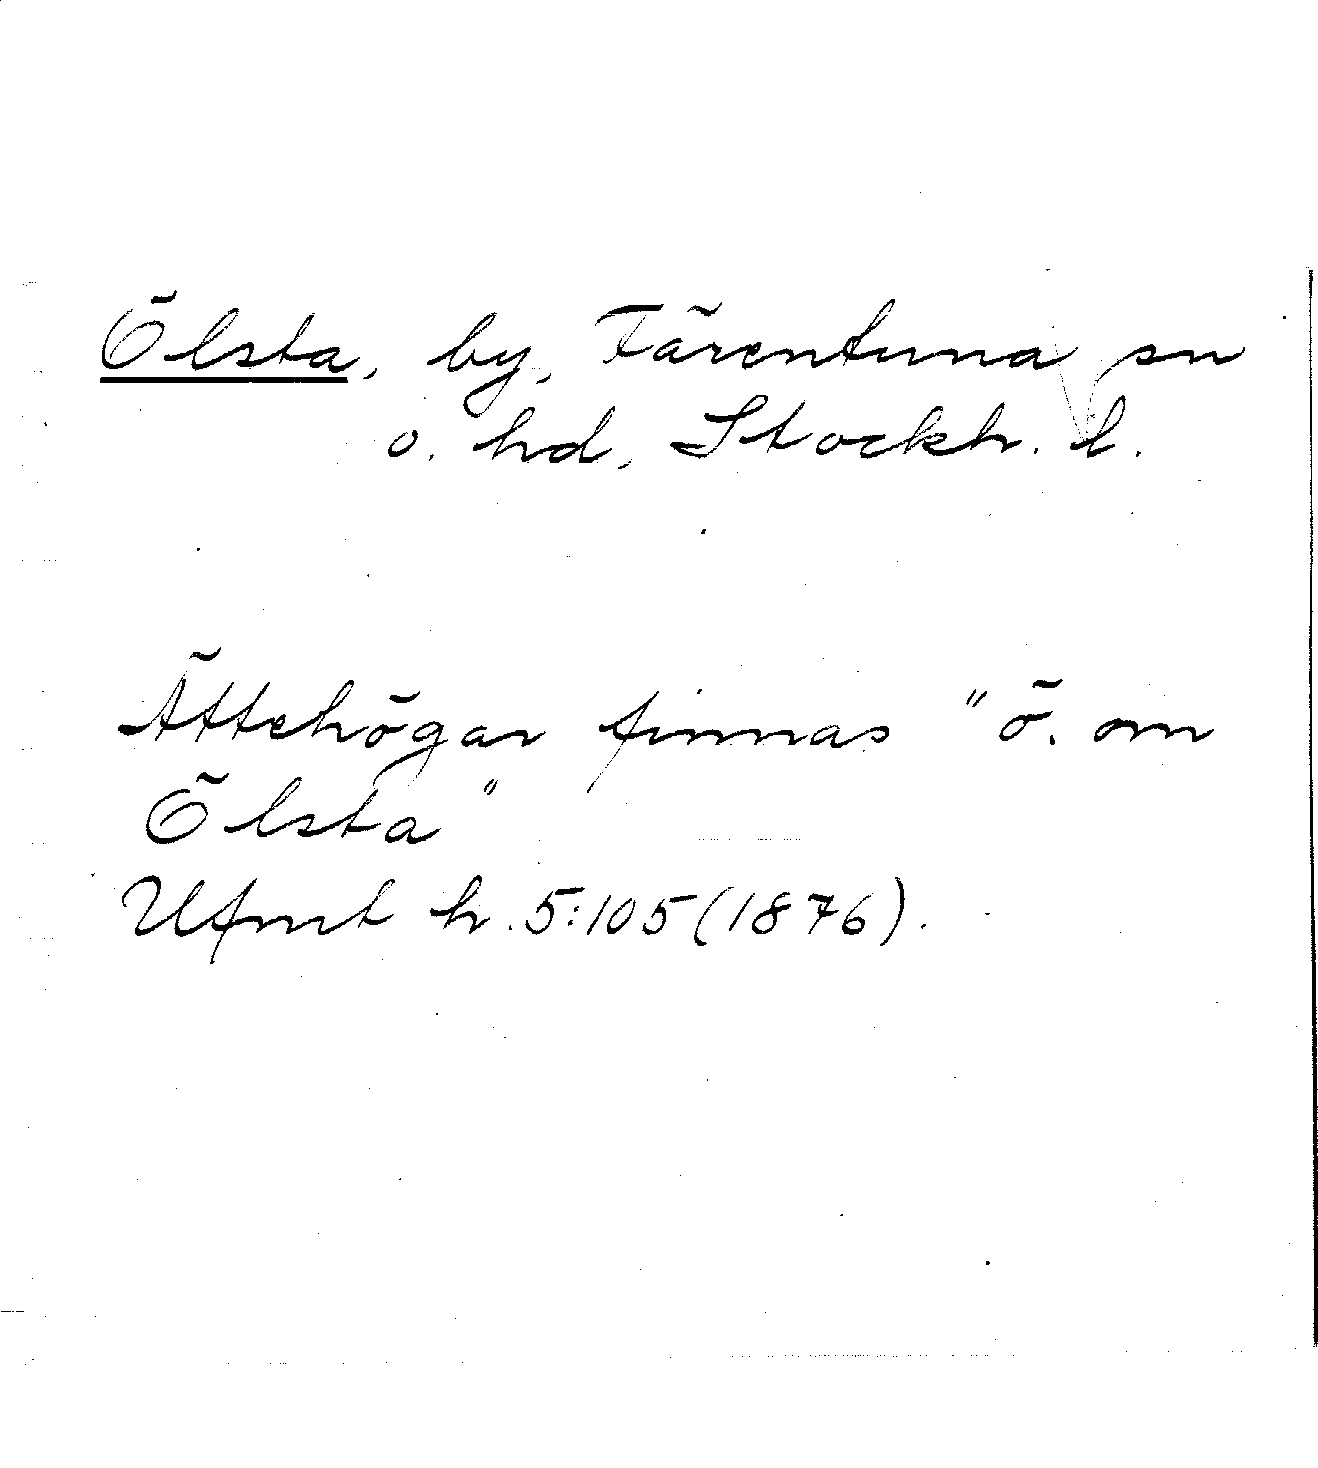 Ölsta, by, Färentuna sn
o. hd, Stockh. l.
Ättehögar finnas "ö. om
Ölsta"
Ufmt h. 5:105 (1876).